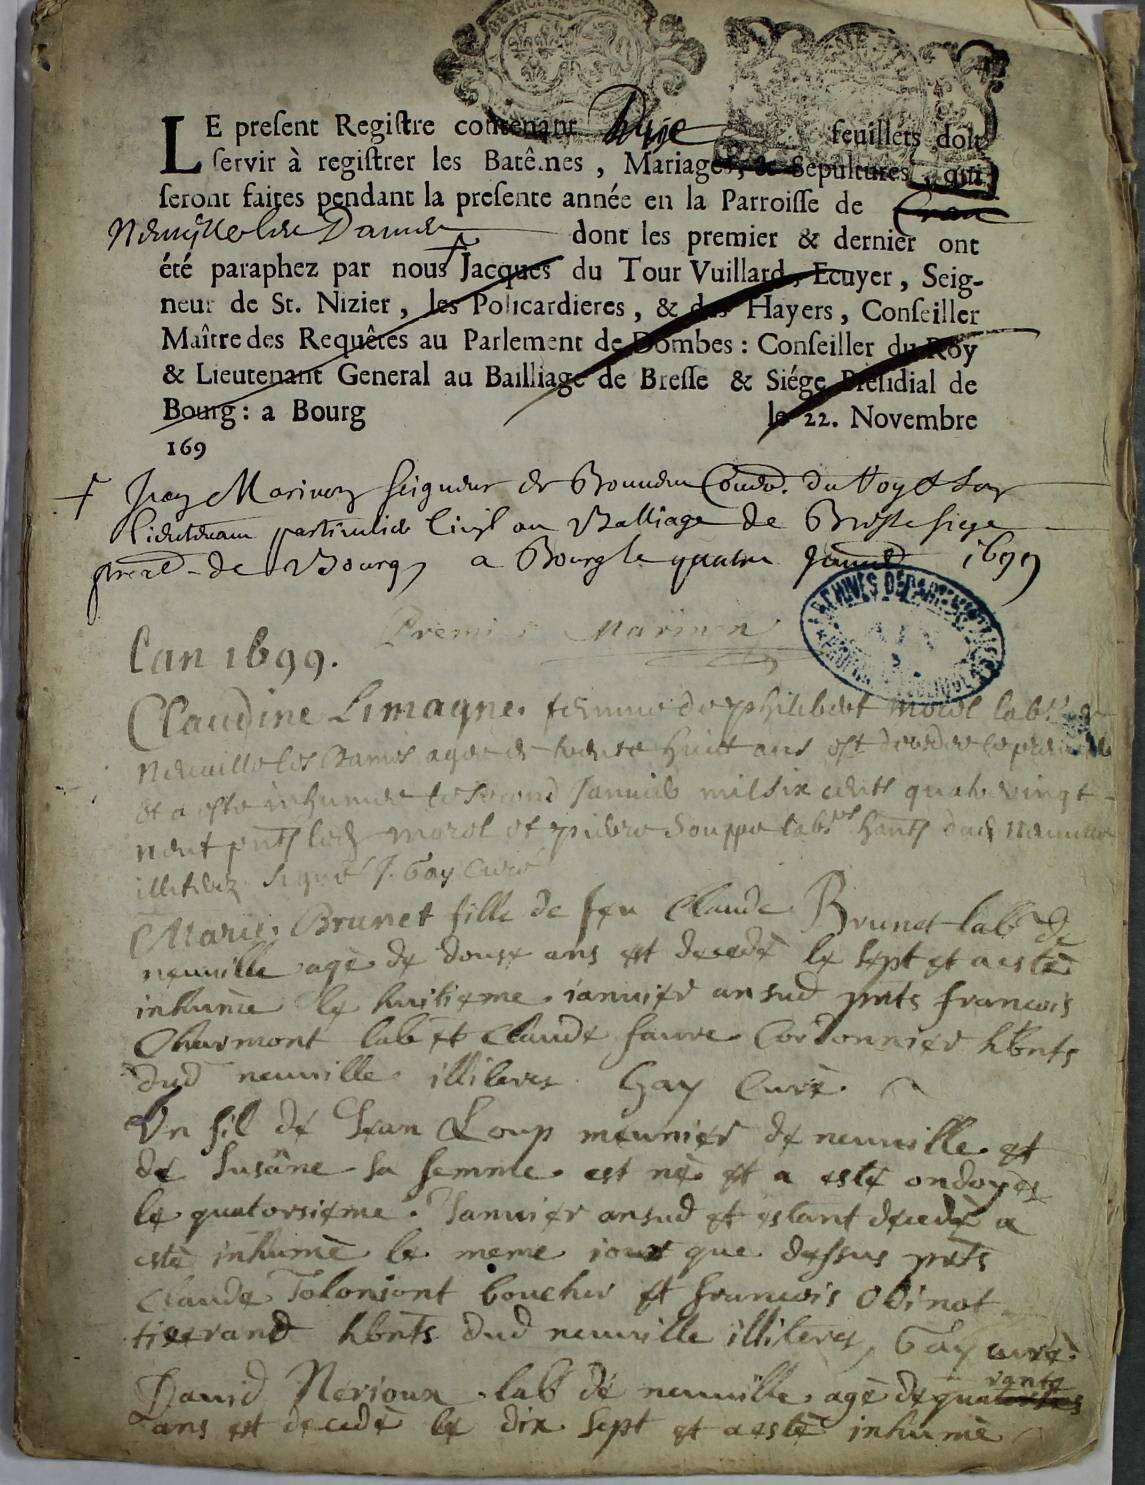 LE present Registre contenant feuillets doit
servir à registrer les Batêmes, Mariages, & Sepultures, qui
seront faites pendant la presente année en la Parroisse de Cran
Neufville les Dames dont les premier & dernier ont
été paraphez par nous Jacques du Tour Vuillard, Ecuyer, Seig-
neur de St. Nizier, les Policardieres, & des Hayers, Conseiller
Maître des Requêtes au Parlement de Dombes: Conseiller du Roy
& Lieutenant General au Bailliage de Bresse & Siége Présidial de
Bourg: a Bourg le 22. Novembre
169
Marinon seigneur de du Roy
Lieutenant particulier Civil au Balliage de Bresse siege
de Bourg a Bourg le quatre 1699
Premier Marinon
ARCHIVES DEPARTEMENTALES
L'an 1699.
Claudine Limagne. femme de philibert morel labr de
neuville les Dames agee de trente huict ans est decedee le premier
et a este inhumee le second Janvier mil six cents quatre vingt
neuf pnts led morel et souppe labrs hants dud neuville
illiteres signé J. Gay Curé
Marie Brunet fille de feu Claude Brunet lab de
neuville agè de douse ans est decedè le sept et a estè
inhumè le huitieme ianvier an sud pnts francois
Charmont lab et Claude favre Cordonnier hbnts
dud neuville illiteres Gay Curè
Un fil de Jean Loup meunier de neuville et
de Susâne sa femme est nè et a estè ondoyès
le quatorsieme Janvier an sud et estant decedè a
estè inhumè le meme iour que dessus pnts
Claude boucher et francois Obinot
tisserand hbnts dud neuville illiteres Gay curè
David Nerioux lab de neuville agè de quarante
ans est decedè le dix sept et a estè inhumè